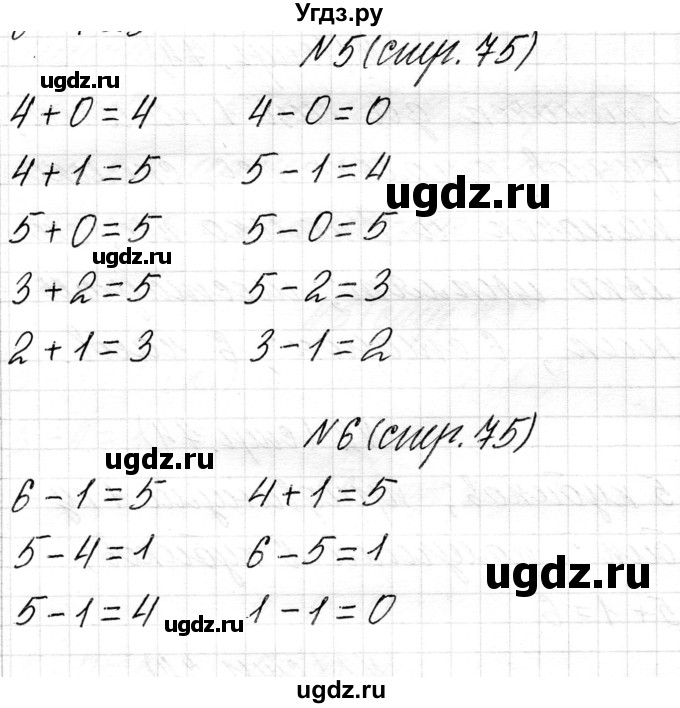 Угдз.ру
N5 (стр. 75)
ugdz.ru
4+0=4 4-0=0
4+1=5 5-1=4
ugdz.ru
5+0=5 5-0=5
ugdz.ru
3+2=5 5-2=3
2+1=3 3-1=2
N6 (стр. 75)
ugdz.ru
6-1=5 4+1=5
5-4=1 6-5=1
ugdz.ru
5-1=4 1-1=0
ugdz.ru
ugdz.ru